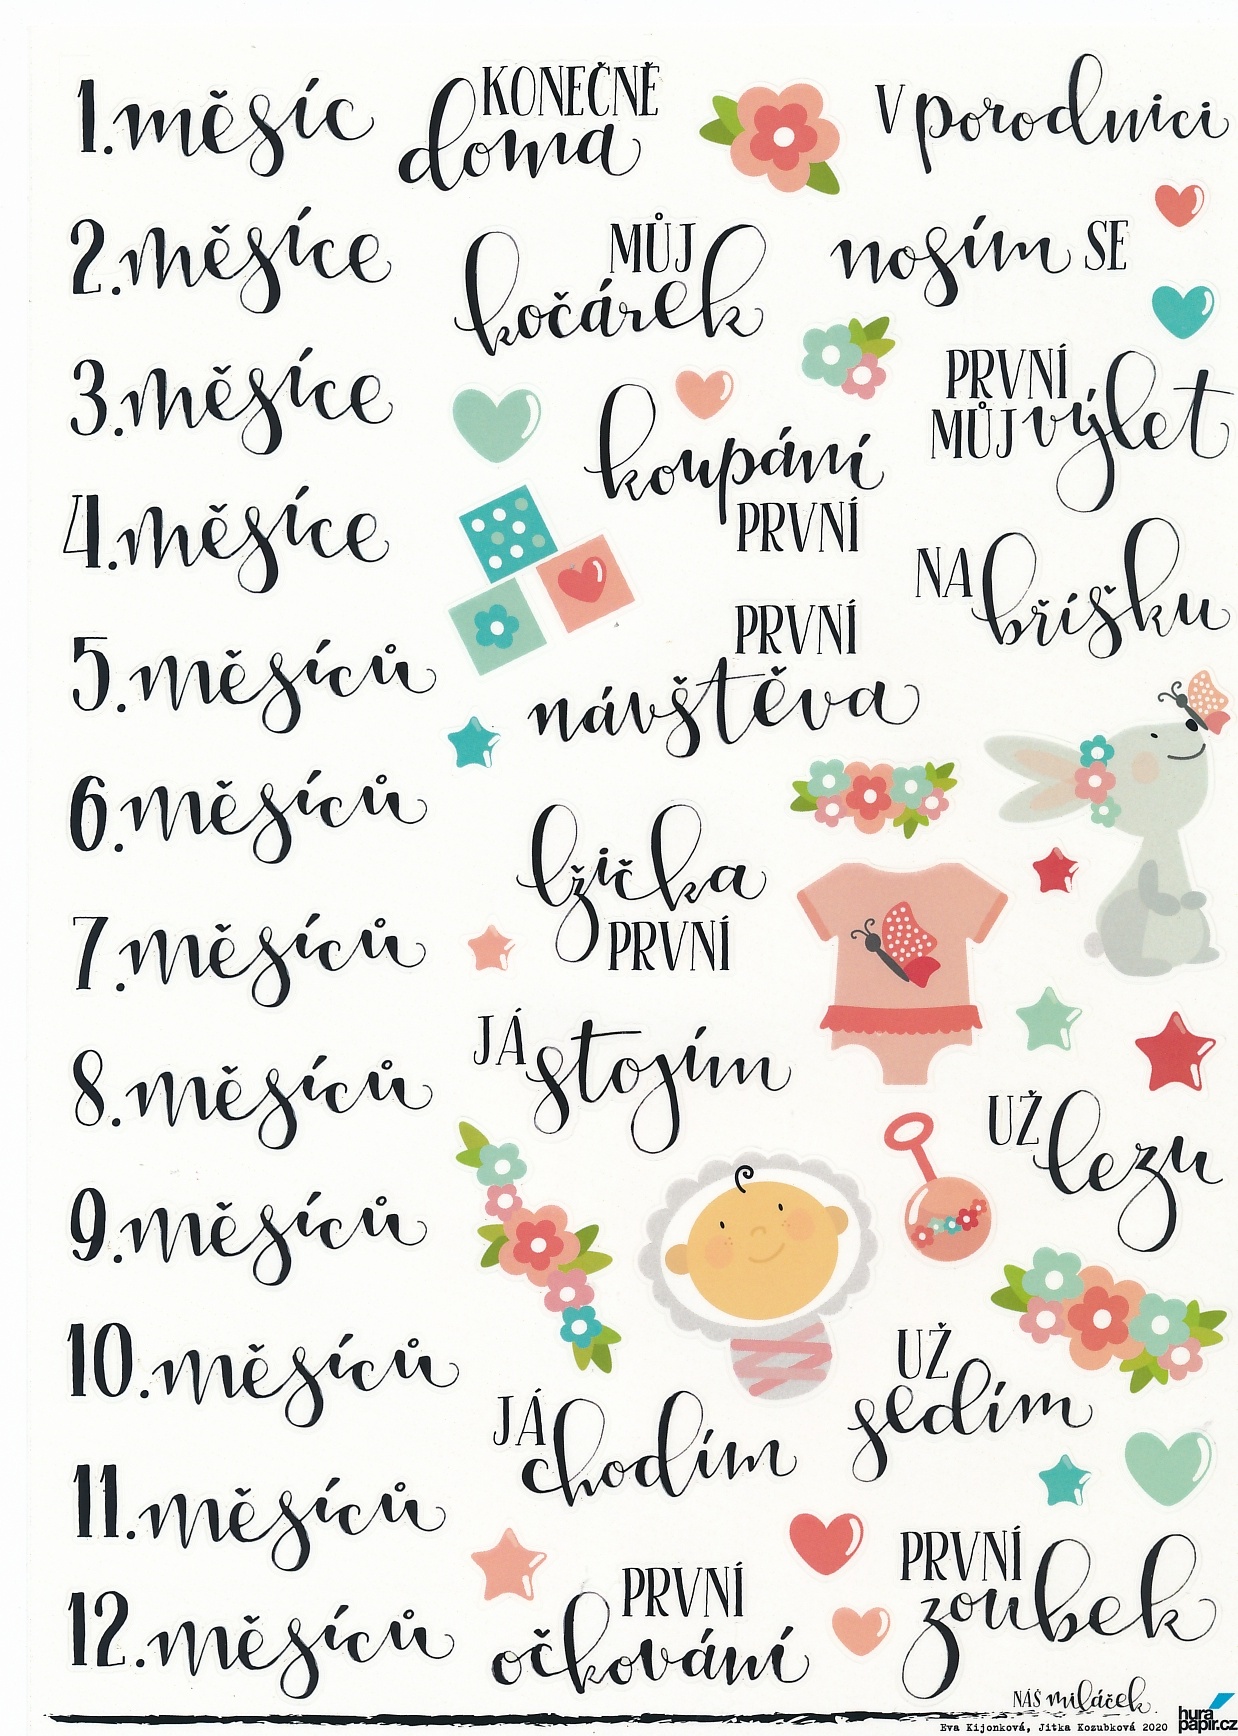 1. měsíc
KONEČNĚ
doma
V porodnici
2. měsíce
MŮJ
kočárek
nosím SE
3. měsíce
koupání
PRVNÍ
PRVNÍ
MŮJ výlet
4. měsíce
NA bříšku
5. měsíců
PRVNÍ
návštěva
6. měsíců
lžička
PRVNÍ
7. měsíců
JÁ stojím
8. měsíců
UŽ lezu
9. měsíců
10. měsíců
UŽ
sedím
JÁ
chodím
11. měsíců
PRVNÍ
zoubek
12. měsíců
PRVNÍ
očkování
NÁŠ miláček
Eva Kijonková, Jitka Kozubková 2020
hura
papir.cz